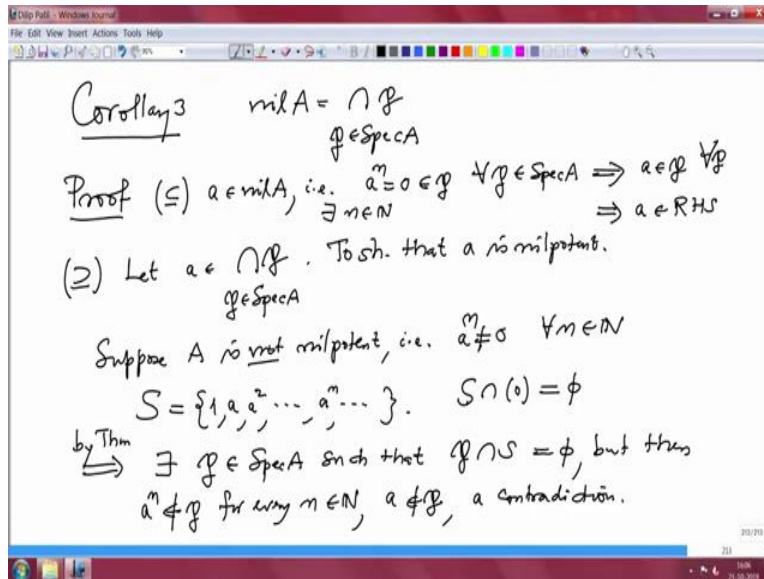 Dilip Patil - Windows Journal
File Edit View Insert Actions Tools Help
Corollary 3 nil A = ∩ 𝔭
𝔭 ∈ Spec A
Proof (⊆) a ∈ nil A, i.e. aⁿ = 0 ∈ 𝔭 ∀ 𝔭 ∈ Spec A ⟹ a ∈ 𝔭 ∀ 𝔭
∃ n ∈ ℕ ⟹ a ∈ RHS
(⊇) Let a ∈ ∩ 𝔭. To sh. that a is nilpotent.
𝔭 ∈ Spec A
Suppose A is not nilpotent, i.e. aⁿ ≠ 0 ∀ n ∈ ℕ
S = {1, a, a², ⋯, aⁿ, ⋯}. S ∩ (0) = ϕ
by Thm
⟹ ∃ 𝔭 ∈ Spec A such that 𝔭 ∩ S = ϕ, but then
aⁿ ∉ 𝔭 for every n ∈ ℕ, a ∉ 𝔭, a contradiction.
213